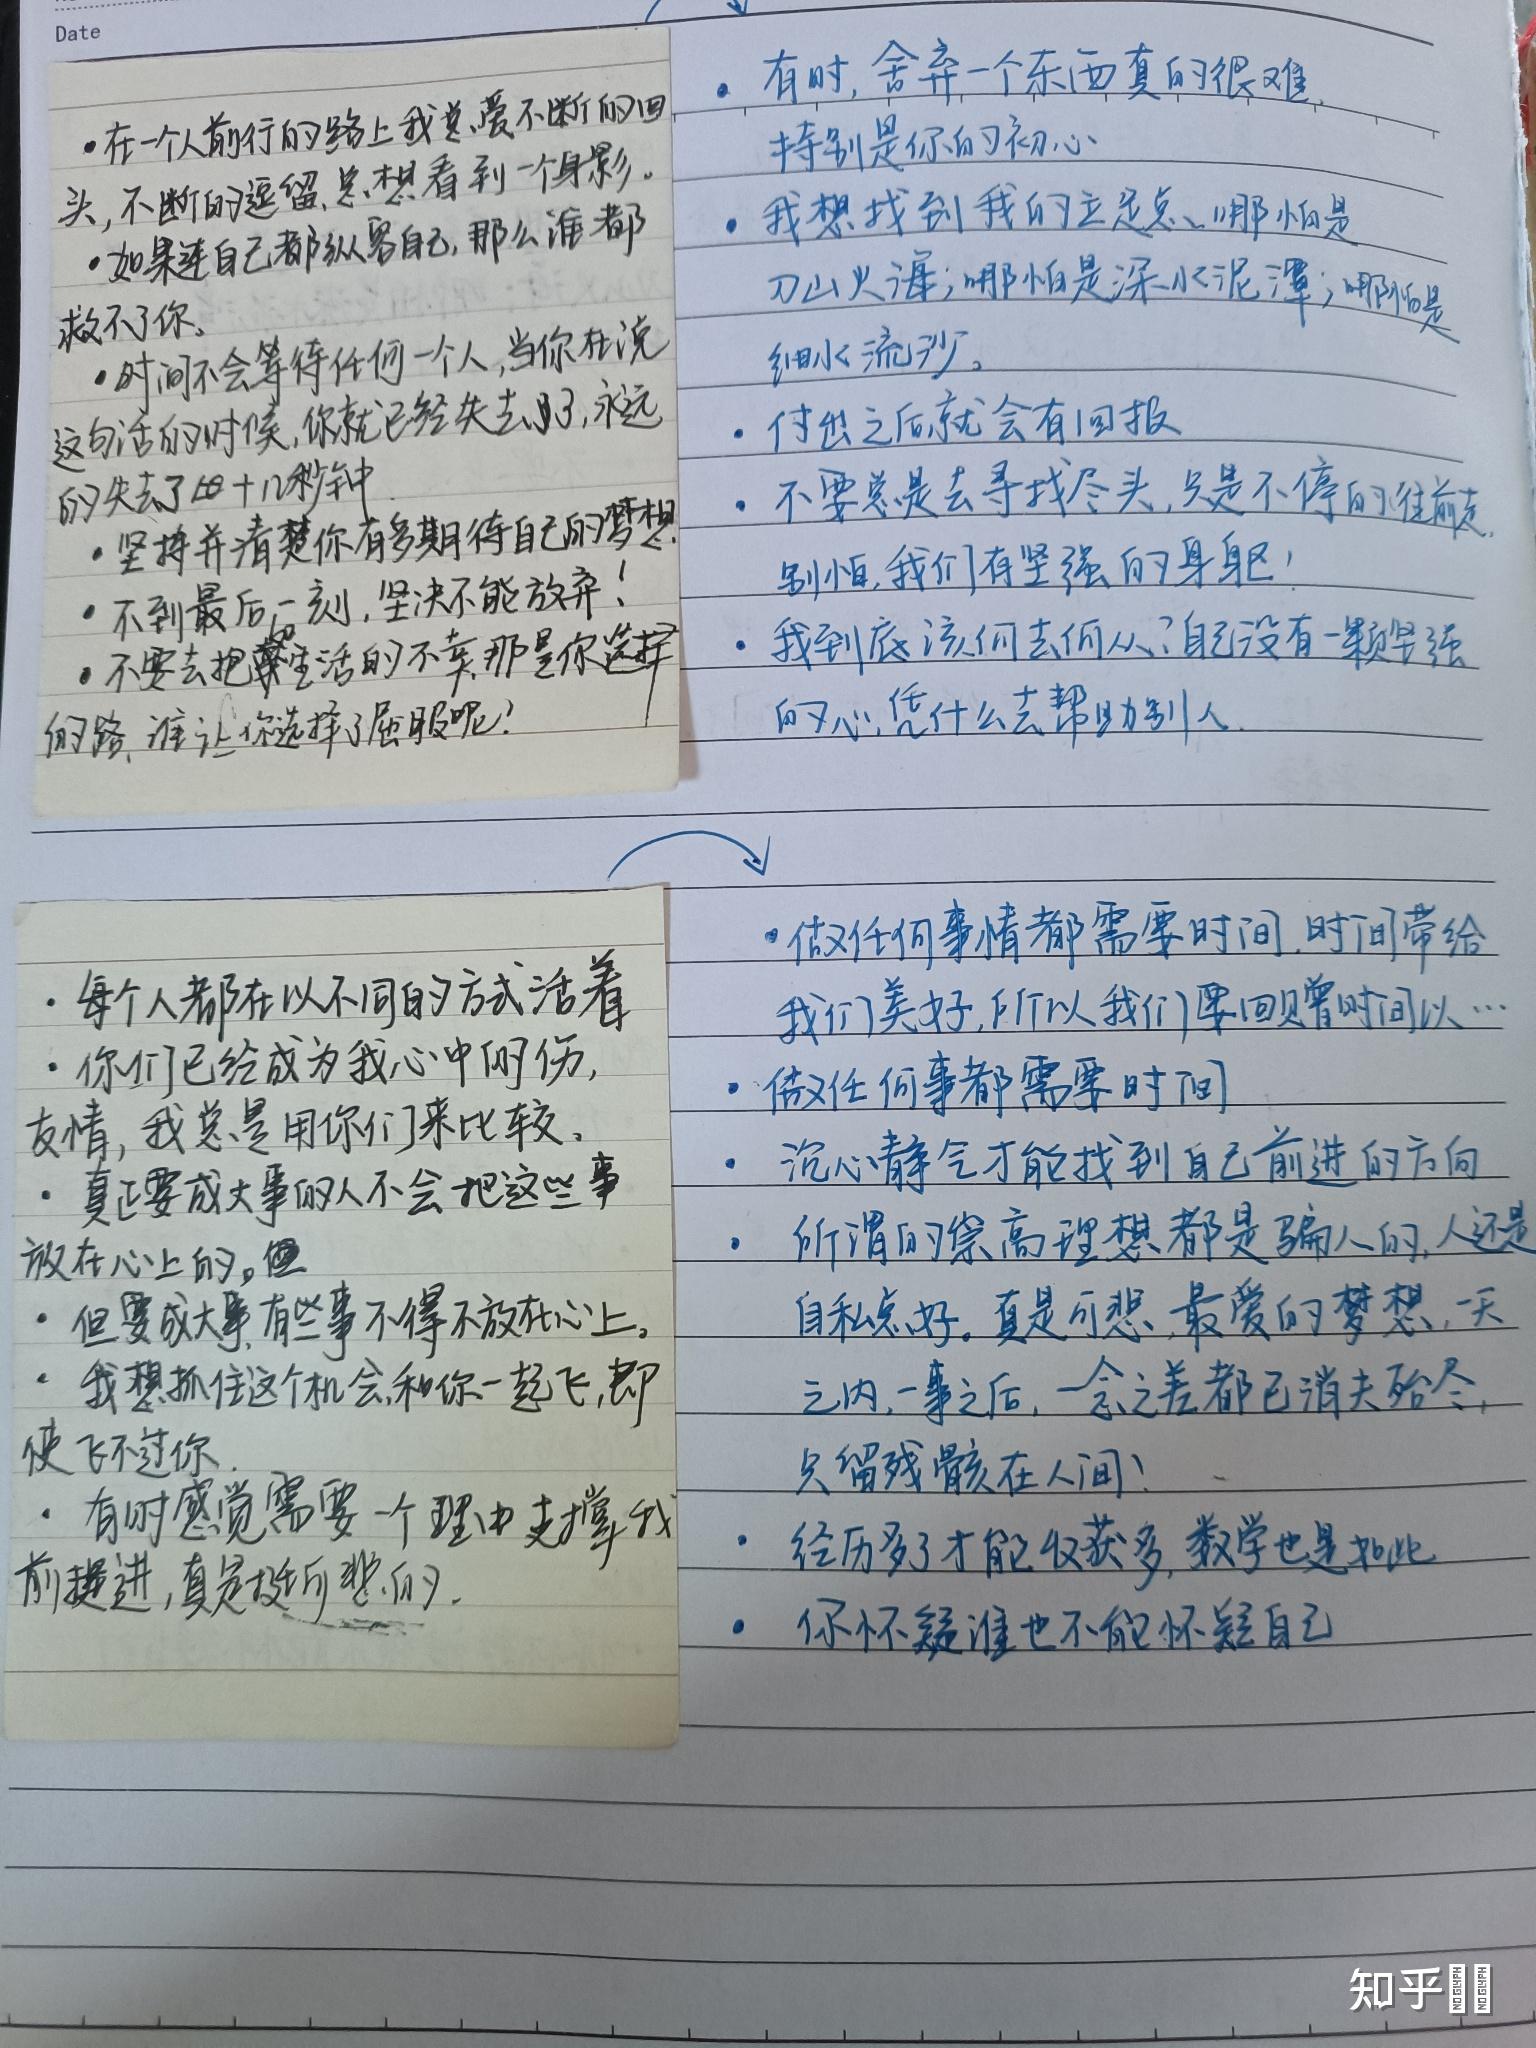 Date
• 在一个人前行的路上我总爱不断的回
头，不断的逗留，总想看到一个身影。
• 如果连自己都纵容自己，那么谁都
救不了你。
• 时间不会等待任何一个人，当你在说
这句话的时候，你就已经失去了，永远
的失去了十几秒钟
• 坚持并清楚你有多期待自己的梦想
• 不到最后一刻，坚决不能放弃！
• 不要去把生活的不幸，那是你选择
的路，谁让你选择了屈服呢？
• 有时，舍弃一个东西真的很难，
特别是你的初心
• 我想找到我的立足点、哪怕是
刀山火海；哪怕是深水泥潭；哪怕是
细水流沙。
• 付出之后就会有回报
• 不要总是去寻找尽头，只是不停的往前走，
别怕，我们有坚强的身躯！
• 我到底该何去何从？自己没有一颗坚强
的心，凭什么去帮助别人．
• 每个人都在以不同的方式活着
• 你们已给成为我心中的伤，
友情，我总是用你们来比较。
• 真正要成大事的人不会把这些事
放在心上的。但
• 但要成大事，有些事不得不放在心上。
• 我想抓住这个机会，和你一起飞，即
使飞不过你．
• 有时感觉需要一个理由支撑我
前进，真是挺可悲的．
• 做任何事情都需要时间，时间带给
我们美好，所以我们要回赠时间以…
• 做任何事都需要时间
• 沉心静气才能找到自己前进的方向
• 所谓的崇高理想都是骗人的，人还是
自私点好。真是可悲，最爱的梦想，一天
之内，一事之后，一念之差都已消失殆尽，
只留残骸在人间！
• 经历多了才能收获多，数学也是如此
• 你怀疑谁也不能怀疑自己
知乎